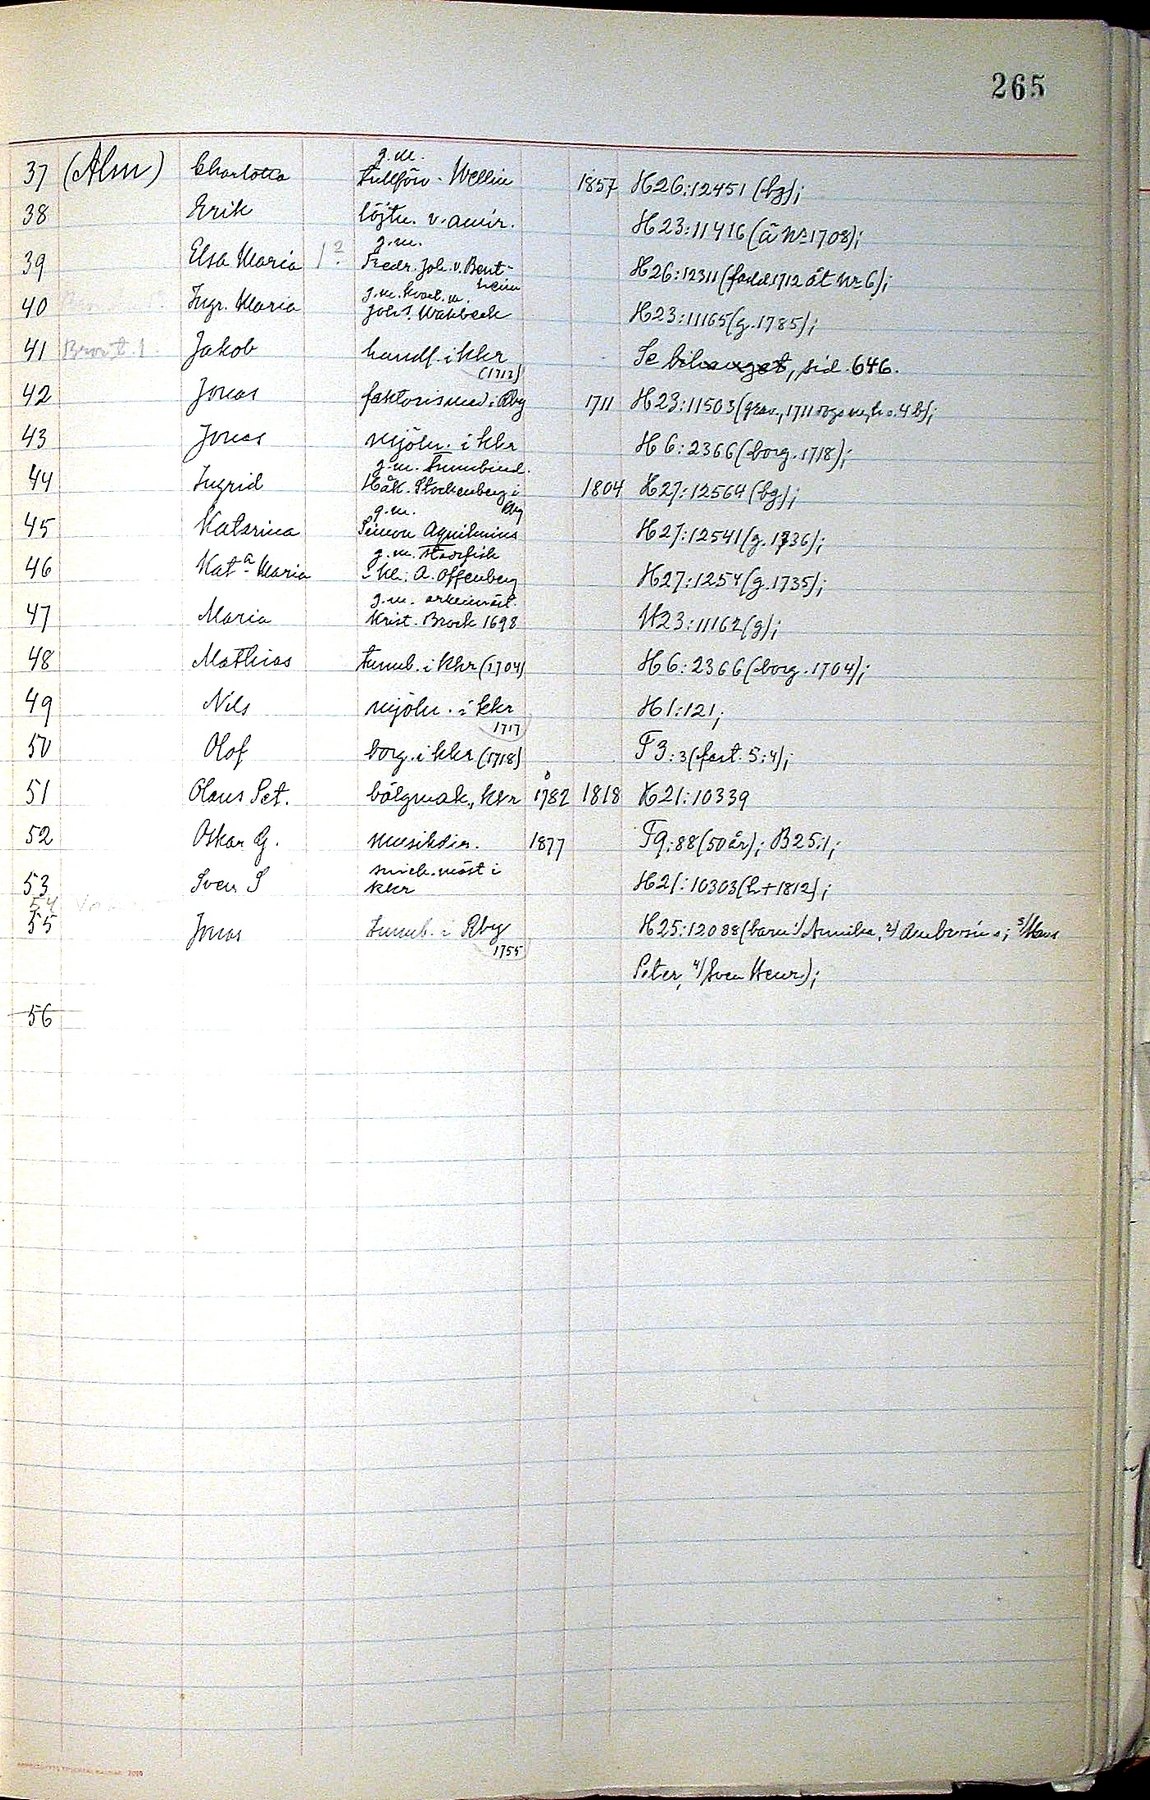 265
37 (Alm) Charlotta g.m. tullförv. Wellin 1857 H26:12451 (bg);
38 Erik löjtn. v. amir. H23:11416 (å № 1708);
39 Elsa Maria 1? g.m. Fredr. Joh. v. Bentheim H26:12311 (född 1712 åt Nr 6);
40 Ingr. Maria g.m. kvart.m. Joh. Wahlbeck H23:11165 (g. 1785);
41 Jakob handl. i kkr (1713) Se bihanget, sid. 646.
42 Jonas faktorismed. i Rby 1711 H23:11503
43 Jonas mjöln. i kkr H6:2366 (borg. 1718);
44 Ingrid g.m. tunnbind. Håk. Stockenberg i Rby 1804 H27:12564 (bg);
45 Katarina g.m. Simon Aquilinius H27:12541 (g. 1736);
46 Kat:a Maria g.m. A. Offenberg H27:1254 (g. 1735);
47 Maria g.m. arklimäst. Krist. Brock 1698 H23:11162 (g);
48 Mathias tunnb. i kkr (1704) H6:2366 (borg. 1704);
49 Nils mjöln. i kkr 1717 H1:121;
50 Olof borg. i kkr (1718) F3:3 (fast. 5:4);
51 Olaus Pet. bälgmak., kkr 1782 1818 H21:10339
52 Oskar G. musikdir. 1877 F9:88 (50 år); B25:1;
53 Sven S kkr H21:10303 (h + 1812);
54
55 Jonas tunnb. i Rby 1755 H25:12088 (barn 1/ Annika, 2/ Ambrosius; 3/ Hans
Peter, 4/ Sven Henr);
56